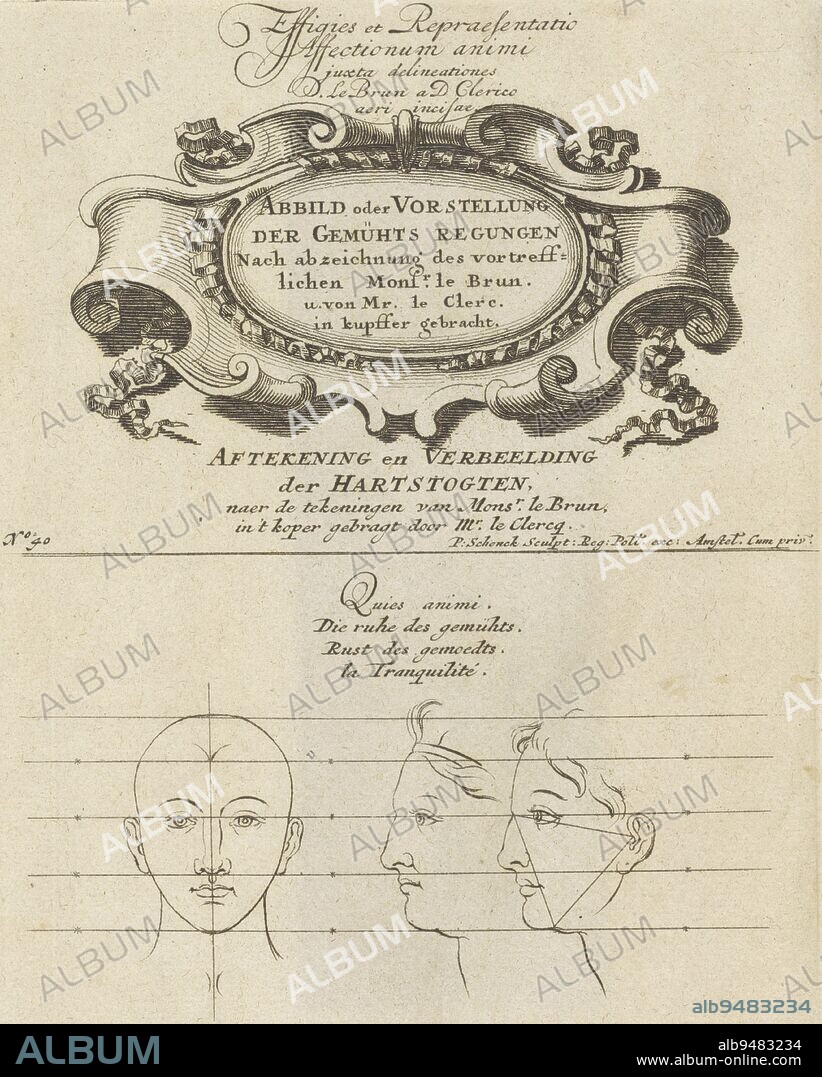 Effigies et Repraesentatio
Affectionum animi
juxta delineationes
D. Le Brun a D Clerico
aeri incisae.
ABBILD oder VORSTELLUNG
DER GEMÜHTS REGUNGEN
Nach abzeichnung des vortreff=
lichen Monsr. le Brun.
u. von Mr. le Clerc.
in kupffer gebracht.
AFTEKENING en VERBEELDING
der HARTSTOGTEN,
naer de tekeningen van Monsr. le Brun,
in't koper gebragt door Mr. le Clercq.
No. 40
P: Schenck Sculpt: Reg: Pol: exc: Amstel. Cum priv.
Quies animi.
Die ruhe des gemühts.
Rust des gemoedts.
la Tranquilité.
ALBUM
alb9483234
ALBUM
alb9483234
www.album-online.com